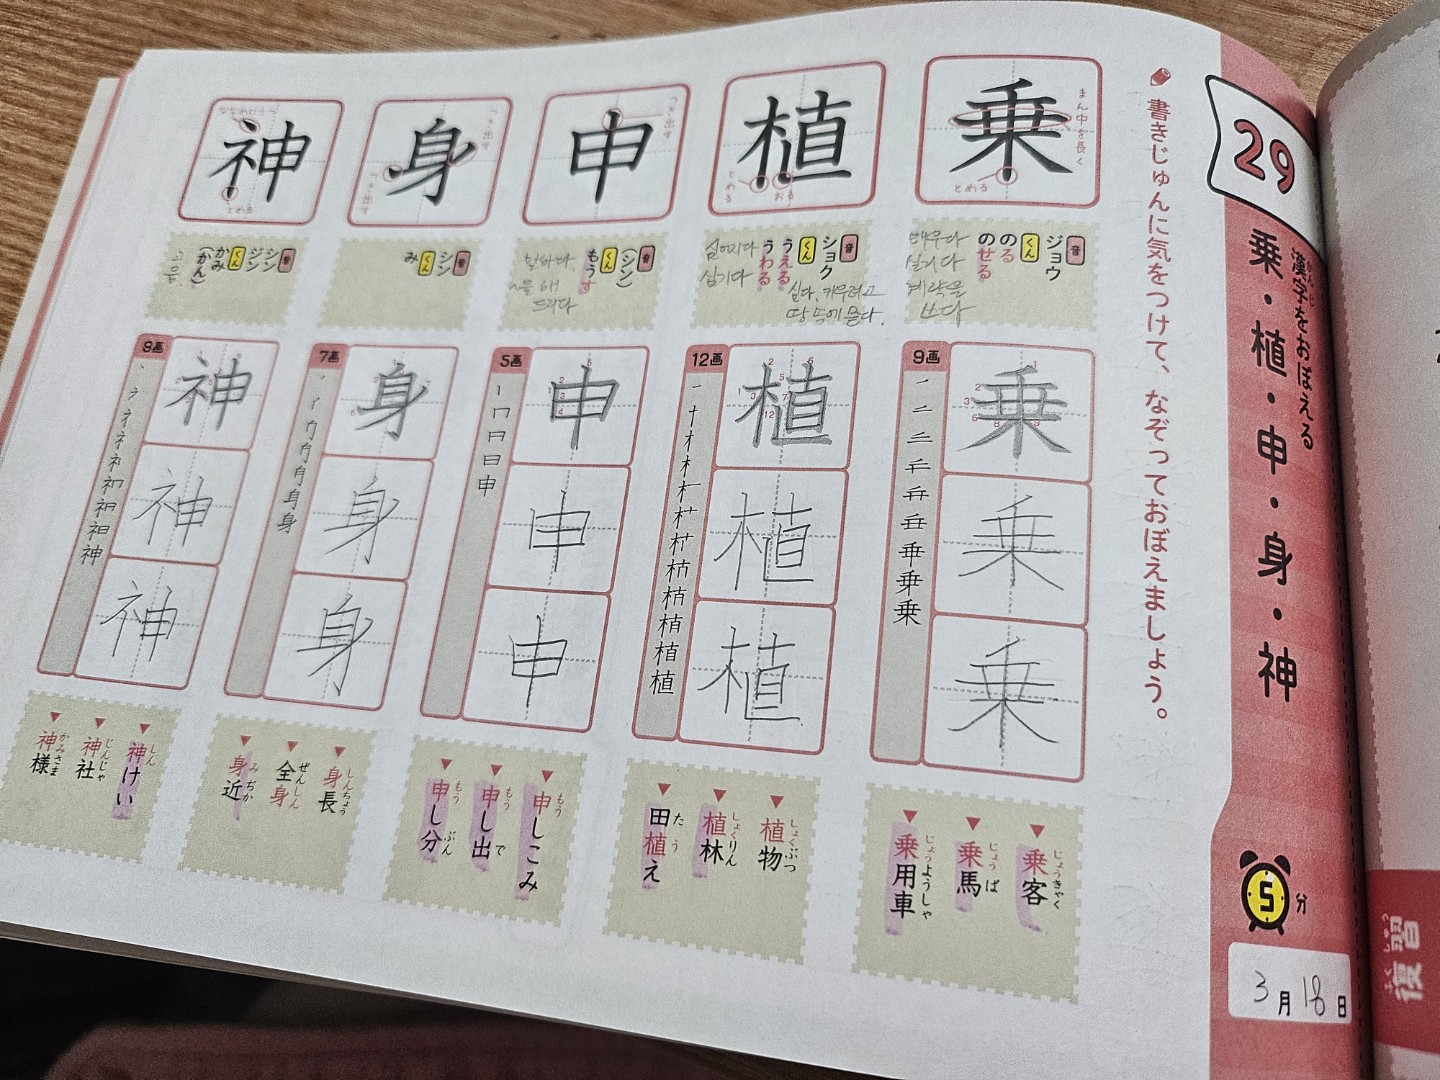 29
漢字をおぼえる
かんじ
乗・植・申・身・神
5分
3月18日
書きじゅんに気をつけて、なぞっておぼえましょう。
乗
まん中を長く
とめる
音
ジョウ
くん
のる
のせる
태우다
싣다
계략을
쓰다
9画
乗
乗
乗
乗客
じょうきゃく
乗馬
じょうば
乗用車
じょうようしゃ
植
とめる
おる
音
ショク
くん
うえる
うわる
심다, 키우려고
땅 속에 묻다.
심어지다
심기다
12画
植
植
植
植物
しょくぶつ
植林
しょくりん
田植え
たう
申
つき出す
音
(シン)
くん
もうす
말하다.
드리다
5画
申
申
申
申しこみ
もう
申し出
もうで
申し分
もうぶん
身
つき出す
つき出す
音
シン
くん
み
7画
身
身
身
身長
しんちょう
全身
ぜんしん
身近
みぢか
神
ななめにうつ
とめる
音
シン
ジン
くん
かみ
(かん)
9画
神
神
神
神けい
しん
神社
じんじゃ
神様
かみさま
復習
ふくしゅう